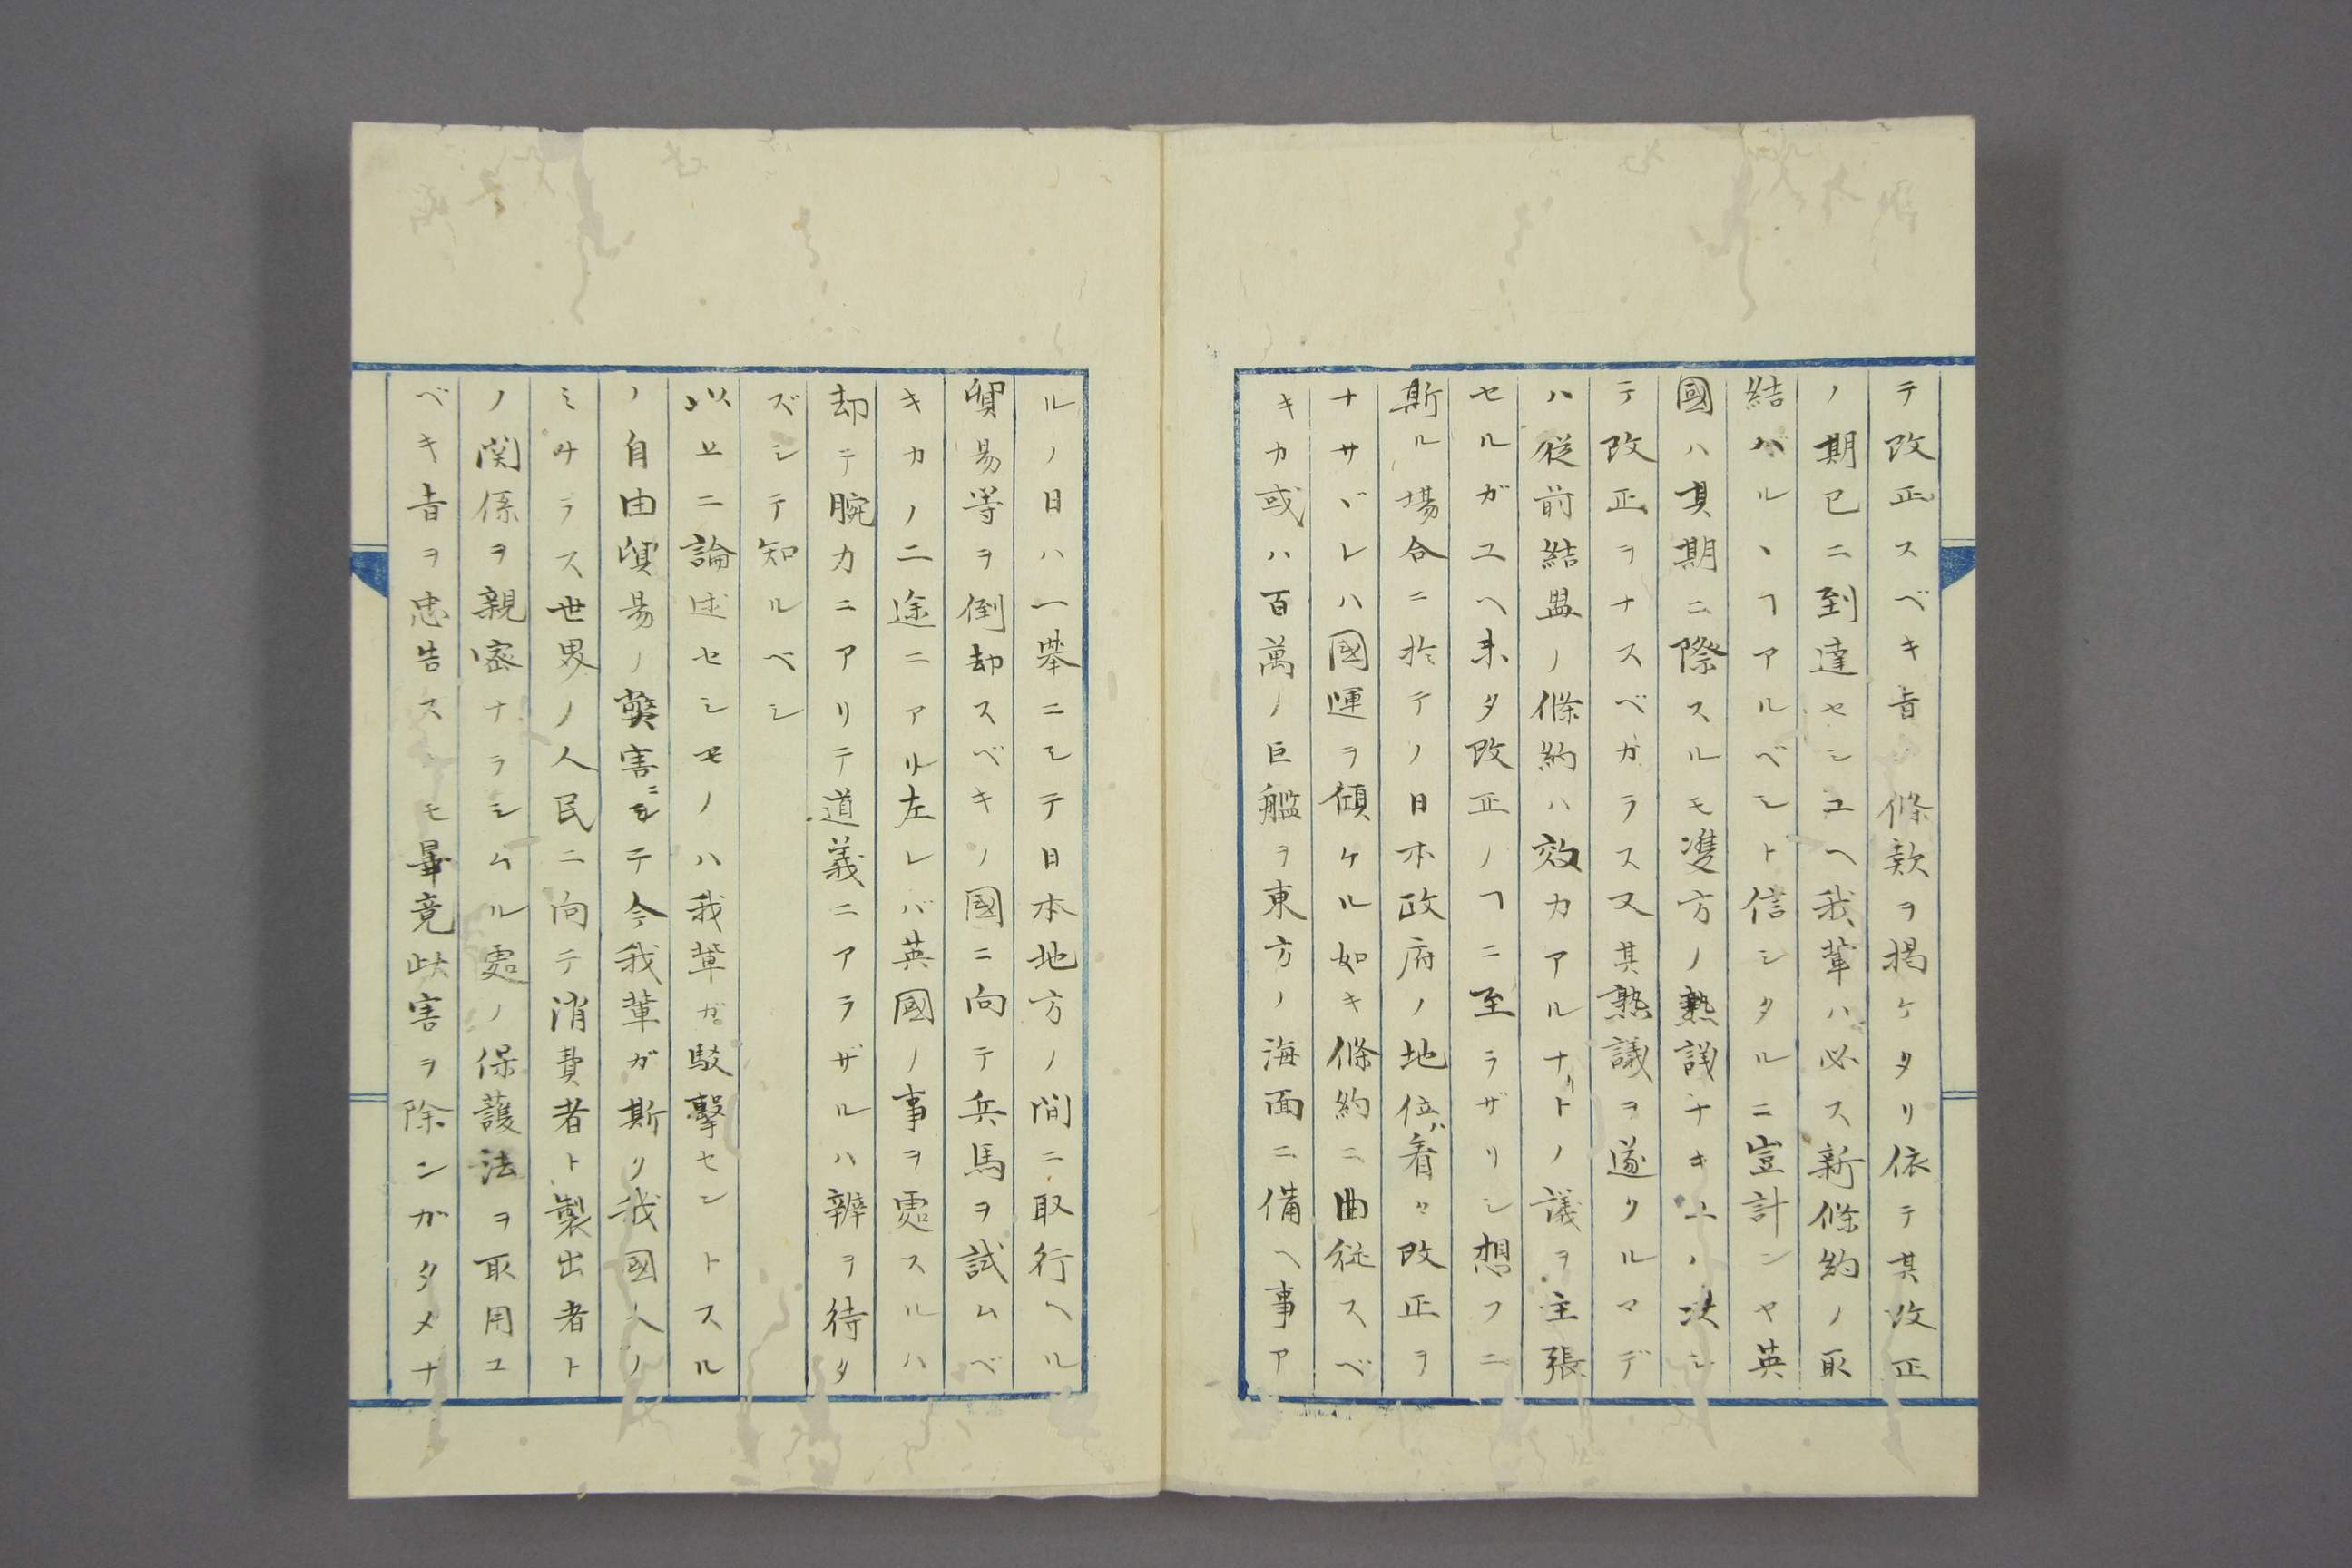 テ改正スベキ旨ノ條款ヲ掲ケタリ依テ其改正
ノ期已ニ到達セシユヘ我輩ハ必ス新條約ノ取
結バルヽヿアルベシト信シタルニ豈計ンヤ英
國ハ其期ニ際スルモ雙方ノ熟議ナキ上ハ决シ
テ改正ヲナスベガラス又其熟議ヲ遂クルマデ
ハ従前結盟ノ條約ハ效力アルナリトノ議ヲ主張
セルガユヘ未タ改正ノヿニ至ラザリシ想フニ
斯ル場合ニ於テノ日本政府ノ地位ハ看々改正ヲ
ナサヾレハ國運ヲ傾ケル如キ條約ニ曲従スベ
キカ或ハ百萬ノ巨艦ヲ東方ノ海面ニ備ヘ事ア
ルノ日ハ一挙ニシテ日本地方ノ間ニ取行ヘル
貿易等ヲ倒却スベキノ國ニ向テ兵馬ヲ試ムベ
キカノ二途ニアリ左レバ英國ノ事ヲ處スルハ
却テ腕力ニアリテ道義ニアラザルハ辨ヲ待タ
ズシテ知ルベシ
以上ニ論述セシモノハ我輩ガ駁擊セントスル
ノ自由貿易ノ弊害ニテ今我輩ガ斯リ我國人ノ
ミナラス世界ノ人民ニ向テ消費者ト製出者ト
ノ関係ヲ親密ナラシムル處ノ保護法ヲ取用ユ
ベキ旨ヲ忠告スルモ畢竟此害ヲ除ンガタメナ